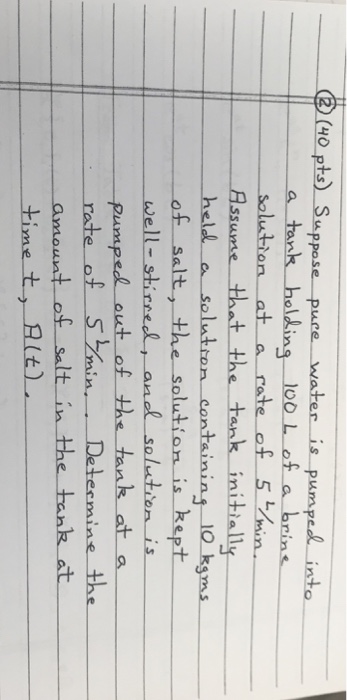 ② (40 pts) Suppose pure water is pumped into
a tank holding 100 L of a brine
solution at a rate of 5 L/min.
Assume that the tank initially
held a solution containing 10 kgms
of salt, the solution is kept
well-stirred, and solution is
pumped out of the tank at a
rate of 5 L/min. Determine the
amount of salt in the tank at
time t, A(t).